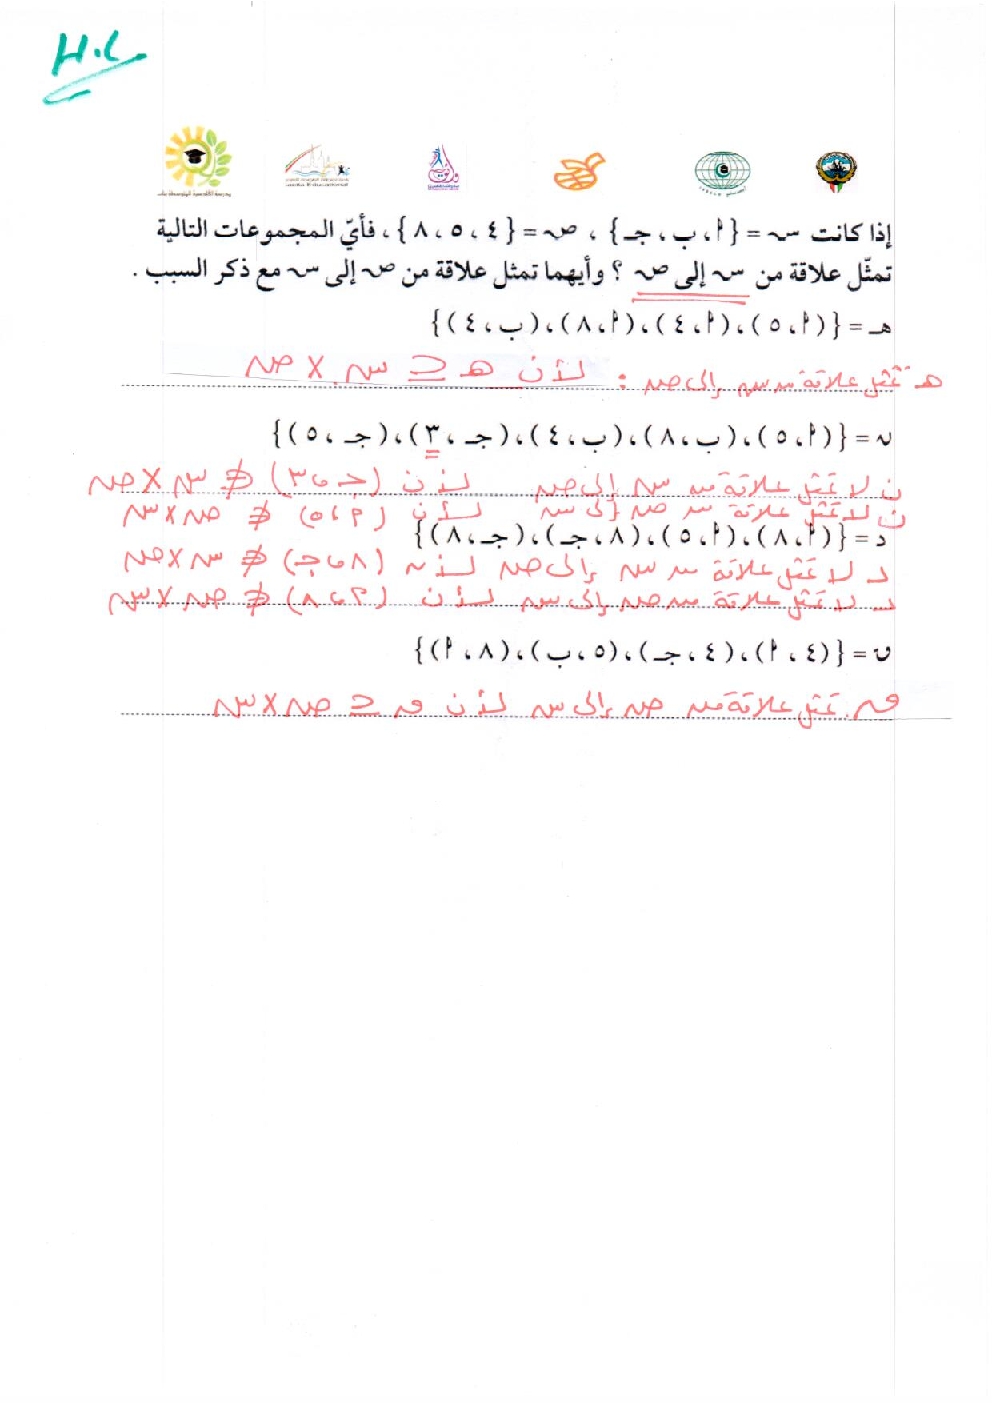 H.L
إذا كانت س = {أ ، ب ، جـ} ، ص = {٤ ، ٥ ، ٨} ، فأيّ المجموعات التالية
تمثّل علاقة من س إلى ص ؟ وأيهما تمثل علاقة من ص إلى س مع ذكر السبب .
هـ = {(أ ، ٥) ، (أ ، ٤) ، (أ ، ٨) ، (ب ، ٤)}
هـ تمثل علاقة من س إلى ص : لأن هـ ⊆ س × ص
ن = {(أ ، ٥) ، (ب ، ٨) ، (ب ، ٤) ، (جـ ، ٣) ، (جـ ، ٥)}
ن لا تمثل علاقة من س إلى ص لأن (جـ ، ٣) ∉ س × ص
ن لا تمثل علاقة من ص إلى س لأن (أ ، ٥) ∉ ص × س
د = {(أ ، ٨) ، (أ ، ٥) ، (٨ ، جـ) ، (جـ ، ٨)}
د لا تمثل علاقة من س إلى ص لأن (٨ ، جـ) ∉ س × ص
د لا تمثل علاقة من ص إلى س لأن (أ ، ٨) ∉ ص × س
ق = {(٤ ، أ) ، (٤ ، جـ) ، (٥ ، ب) ، (٨ ، أ)}
ق تمثل علاقة من ص إلى س لأن ق ⊆ ص × س